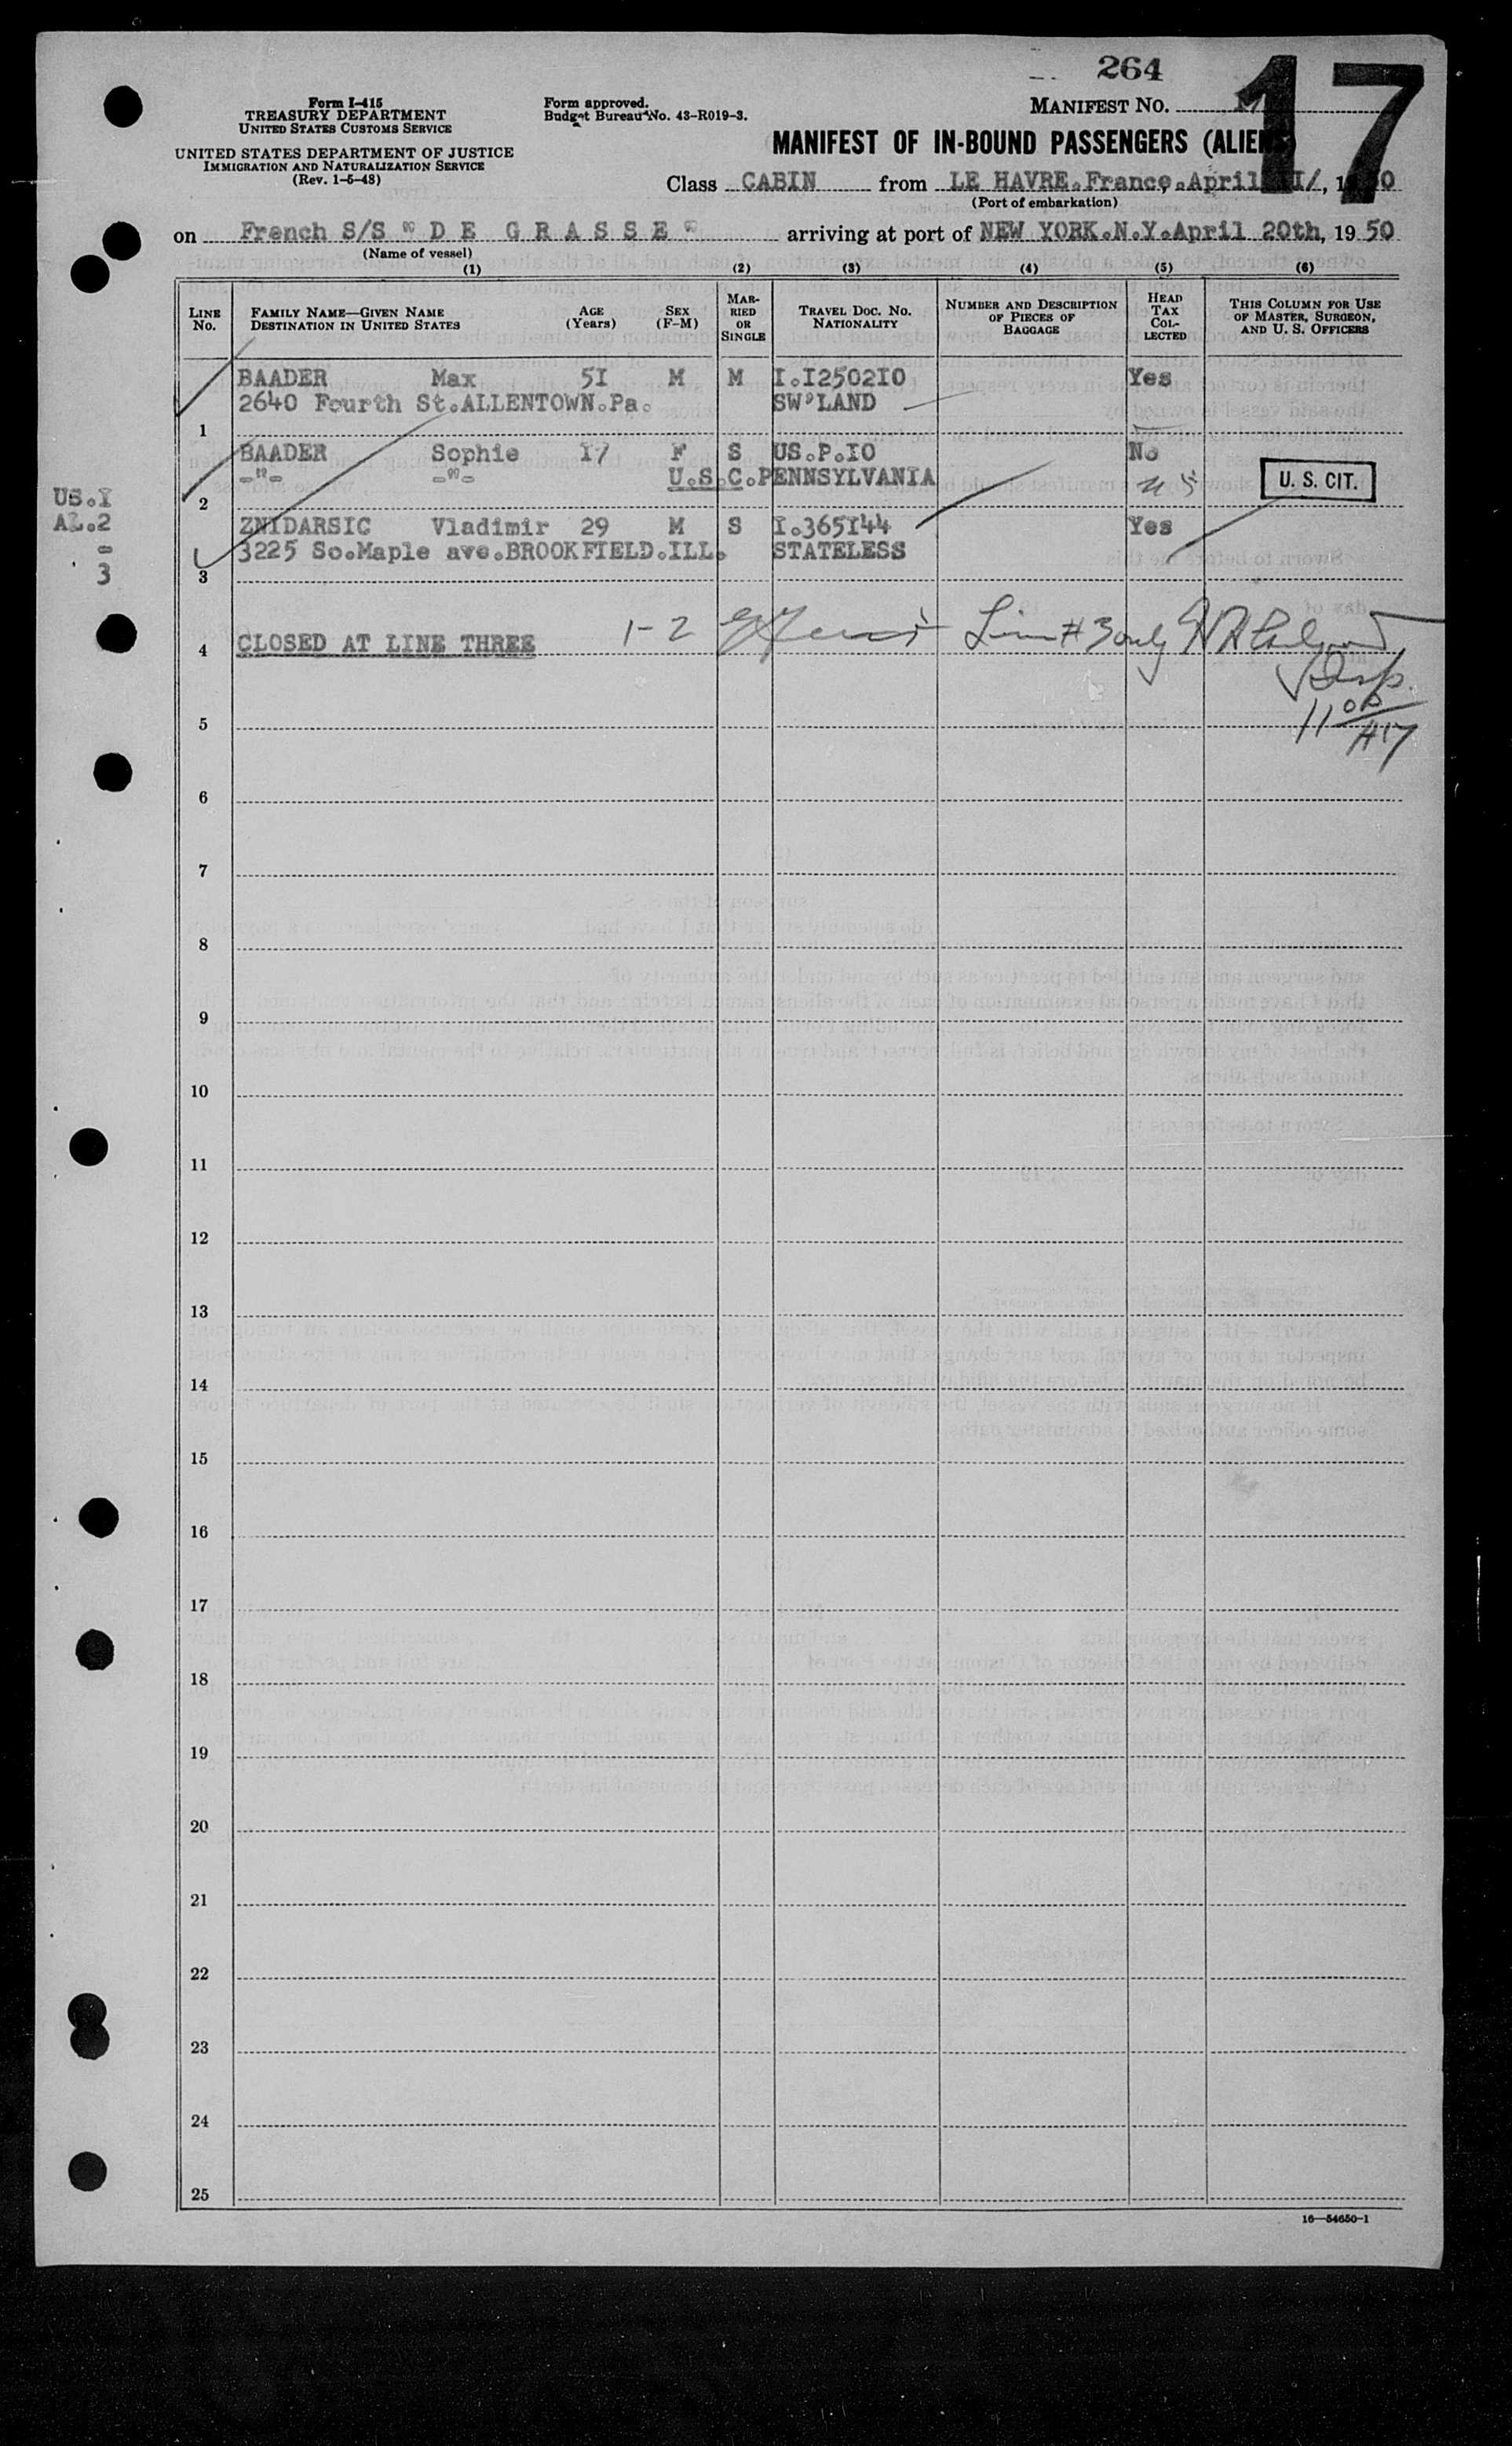 264
17
Form I-415
TREASURY DEPARTMENT
UNITED STATES CUSTOMS SERVICE
UNITED STATES DEPARTMENT OF JUSTICE
IMMIGRATION AND NATURALIZATION SERVICE
(Rev. 1-5-48)
Form approved.
Budget Bureau No. 43-R019-3.
MANIFEST NO.
MANIFEST OF IN-BOUND PASSENGERS (ALIENS)
Class CABIN from LE HAVRE.France,.April II/, 1950
(Port of embarkation)
on French S/S "D E G R A S S E" arriving at port of NEW YORK.N.Y.April 20th, 1950
(Name of vessel)
(1) (2) (3) (4) (5) (6)
LINE No. FAMILY NAME—GIVEN NAME DESTINATION IN UNITED STATES AGE (Years) SEX (F-M) MARRIED OR SINGLE TRAVEL DOC. NO. NATIONALITY NUMBER AND DESCRIPTION OF PIECES OF BAGGAGE HEAD TAX COLLECTED THIS COLUMN FOR USE OF MASTER, SURGEON, AND U. S. OFFICERS
BAADER Max 5I M M I.I2502I0 Yes
2640 Fourth St.ALLENTOWN.Pa. SW'LAND
1
BAADER Sophie I7 F S US.P.IO No
-"- -"- U.S.C.PENNSYLVANIA U. S. CIT.
2
US.I
AL.2
-
3
ZNIDARSIC Vladimir 29 M S I.365I44 Yes
3225 So.Maple ave.BROOKFIELD.ILL. STATELESS
3
4 CLOSED AT LINE THREE 1-2 Line #3 only
1100
#17
5
6
7
8
9
10
11
12
13
14
15
16
17
18
19
20
21
22
23
24
25
16—54650-1